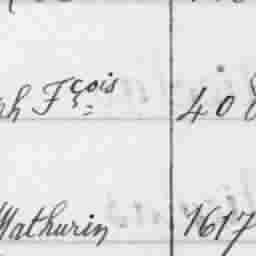 ph Fçois 408
Mathurin 1617